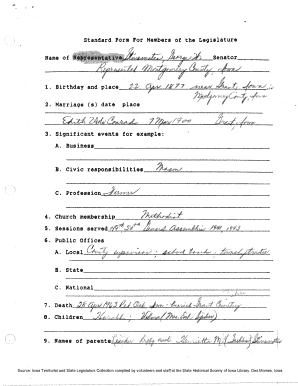 Standard Form For Members of the Legislature
Name of Representative George Senator
Represented Montgomery County, Iowa
1. Birthday and place 22 Apr 1877 near Grant, Iowa
Montgomery County, Iowa
2. Marriage (s) date place
Edith Conrad 7 Mar 1900 Grant, Iowa
3. Significant events for example:
A. Business
B. Civic responsibilities Mason
C. Profession Farmer
4. Church membership Methodist
5. Sessions served 49th, 50th General Assemblies 1941, 1943
6. Public Offices
A. Local County supervisor; school board; trustee
B. State
C. National
7. Death 28 Apr 1963 Red Oak, Iowa buried Grant Cemetery
8. Children
9. Names of parents Henrietta M.
Source: Iowa Territorial and State Legislators Collection compiled by volunteers and staff at the State Historical Society of Iowa Library, Des Moines, Iowa.